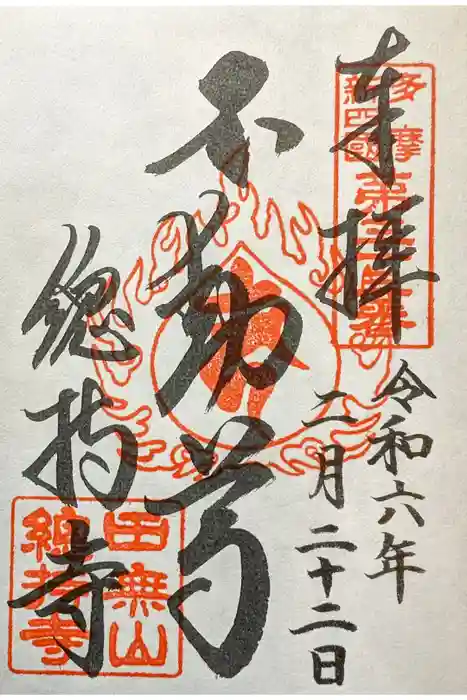 奉拝
多摩
新四國
令和六年
二月二十二日
不動尊
總持寺
田無山
總持寺